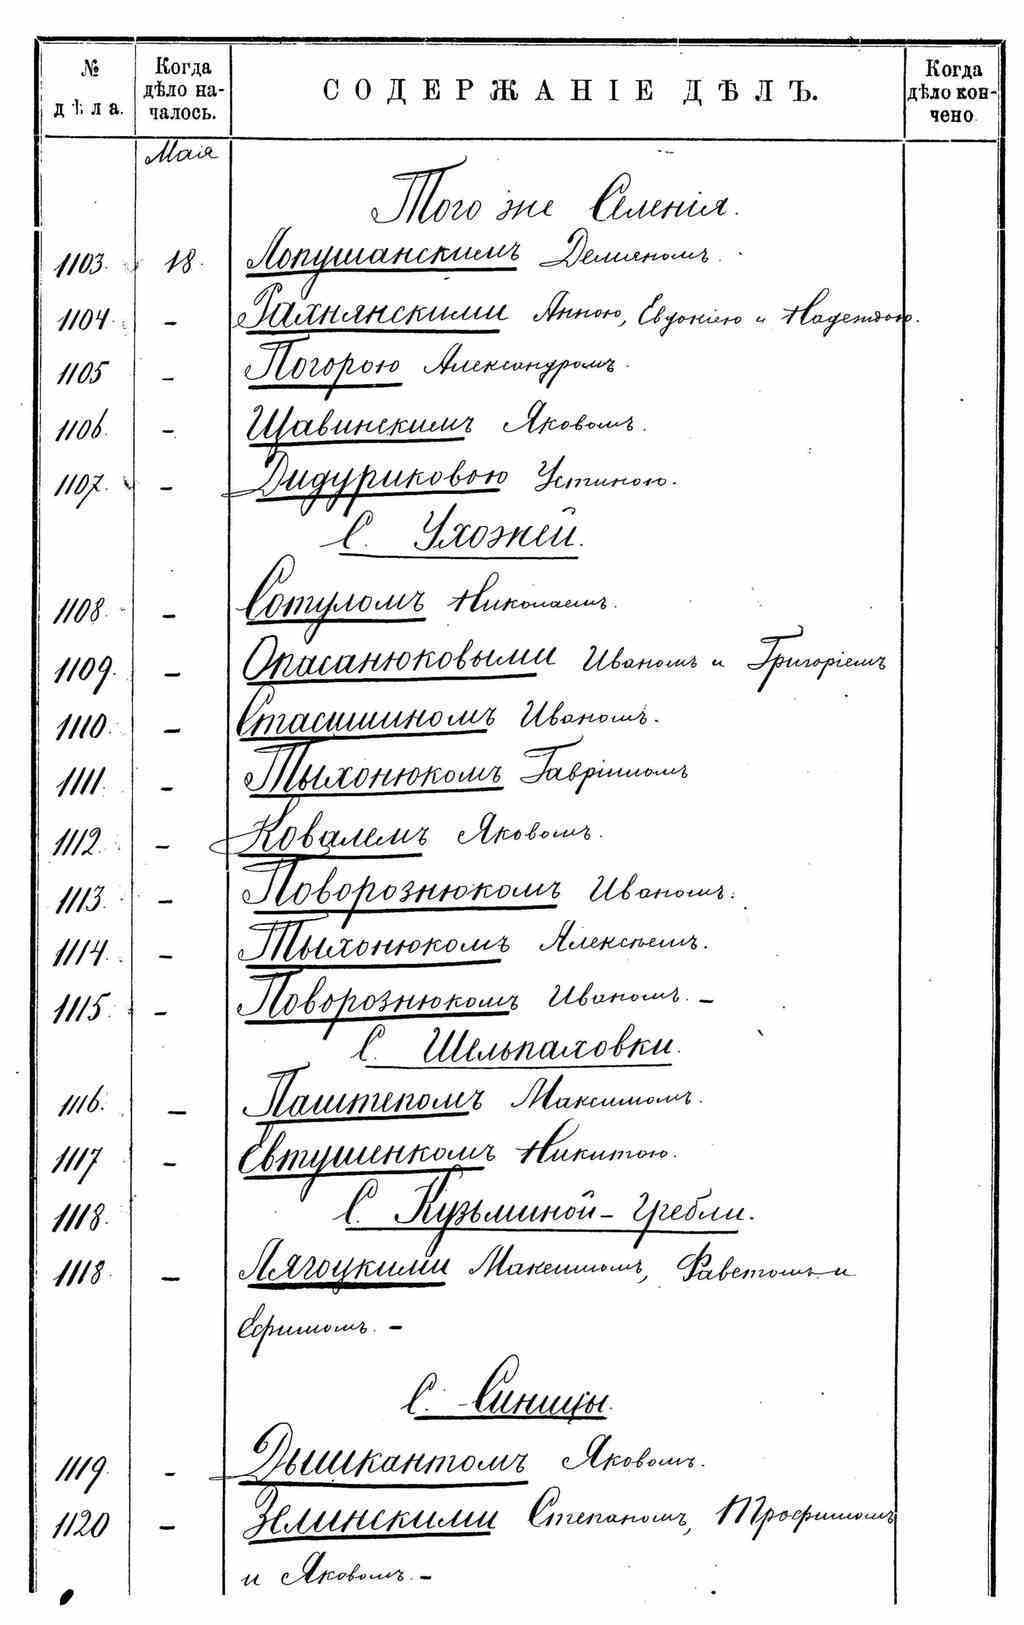 № дѣла. Когда дѣло началось. СОДЕРЖАНІЕ ДѢЛЪ. Когда дѣло кончено
Мая
Того же Селенія.
1103. 18. Лопушанскимъ Демяномъ.
1104. – Рахнянскими Анною, Евдокіею и Надеждою.
1105 – Погорою Александромъ.
1106. – Щавинскимъ Яковомъ.
1107. – Дидуриковою Устиною.
С. Ухожей.
1108. – Сотуломъ Николаемъ.
1109. – Опасанюковыми Иваномъ и Григоріемъ
1110. – Стасишиномъ Иваномъ.
1111. – Тыхонюкомъ Гавріиломъ
1112. – Ковалемъ Яковомъ.
1113. – Поворознюкомъ Иваномъ.
1114. – Тыхонюкомъ Алексѣемъ.
1115. – Поворознюкомъ Иваномъ. –
С. Шельпаховки.
1116. – Паштепомъ Максимомъ.
1117 – Евтушенкомъ Никитою.
1118. С. Кузьминой-Гребли.
1118. – Лягоцкими Максимомъ, Фавстомъ и
Ефимомъ. –
С. Синицы.
1119. – Дышкантомъ Яковомъ.
1120 – Зелинскими Степаномъ, Трофимомъ
и Яковомъ. –